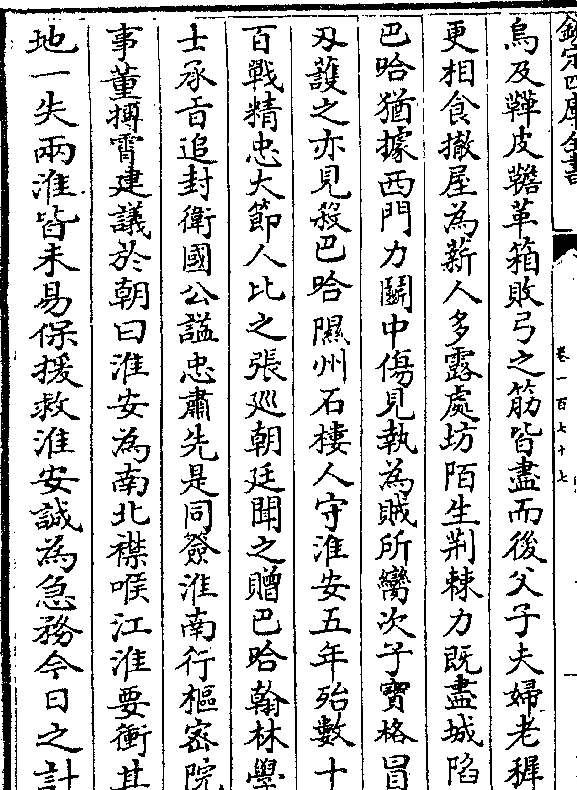 欽定四庫全書
卷一百七十七
烏及鞾皮鞍革箱敗弓之筋皆盡而後父子夫婦老穉
更相食撤屋為薪人多露處坊陌生荆棘力既盡城陷
巴哈猶據西門力鬭中傷見執為賊所臠次子寶格冒
刄護之亦見殺巴哈隰州石樓人守淮安五年殆數十
百戰精忠大節人比之張廵朝廷聞之贈巴哈翰林學
士承㫖追封衛國公諡忠肅先是同簽淮南行樞宻院
事董摶霄建議於朝曰淮安為南北襟喉江淮要衝其
地一失兩淮皆未易保援救淮安誠為急務今日之計